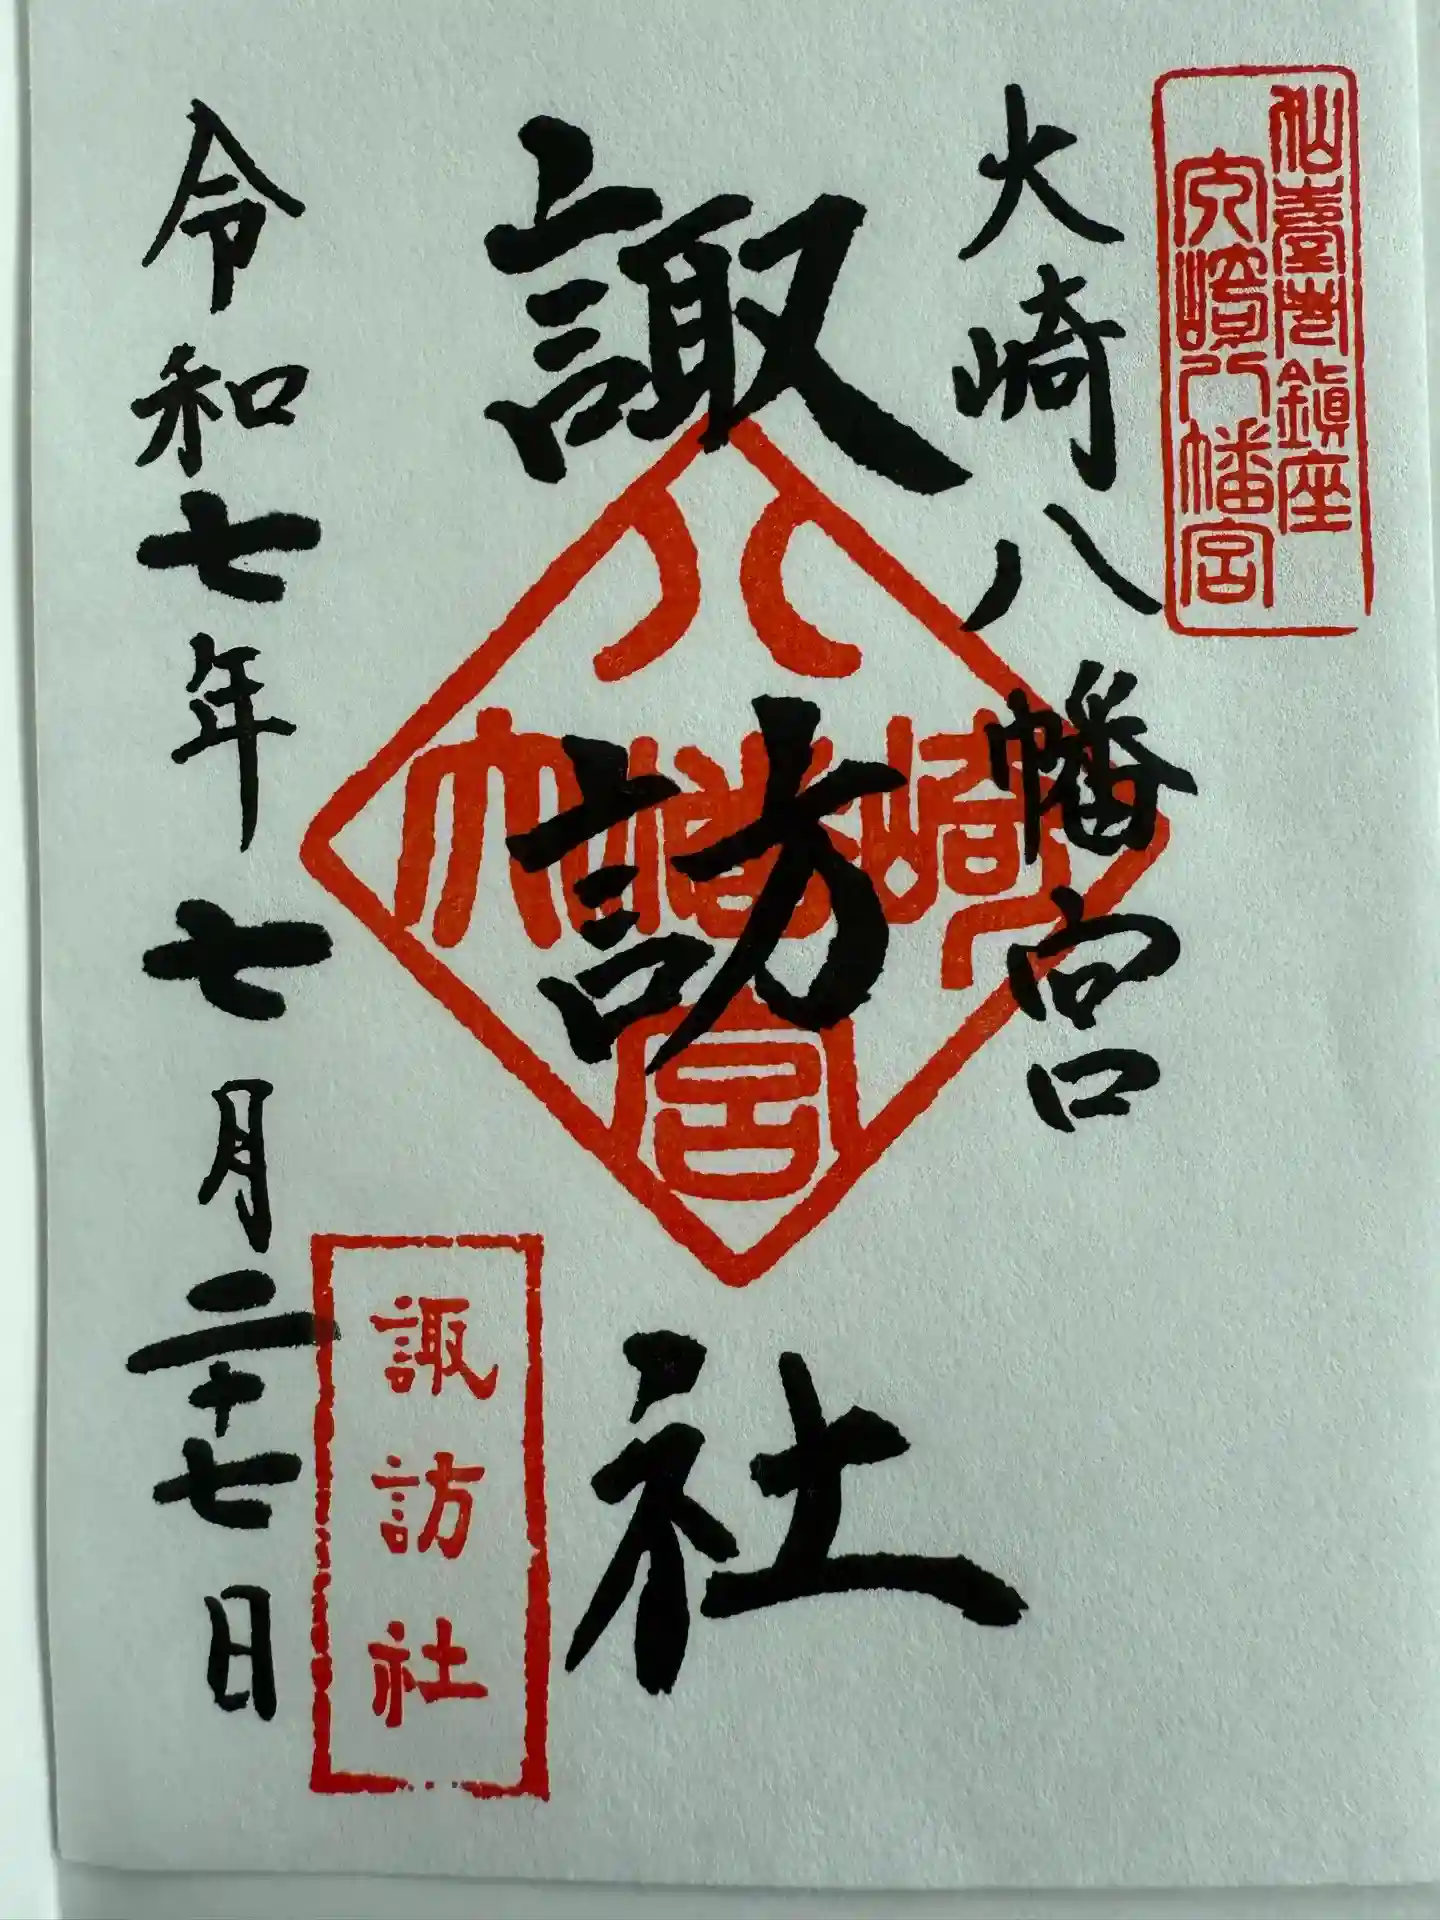 仙臺市鎮座
大崎八幡宮
大崎八幡宮
諏訪社
八
大幡崎
宮
諏訪社
令和七年七月二十七日